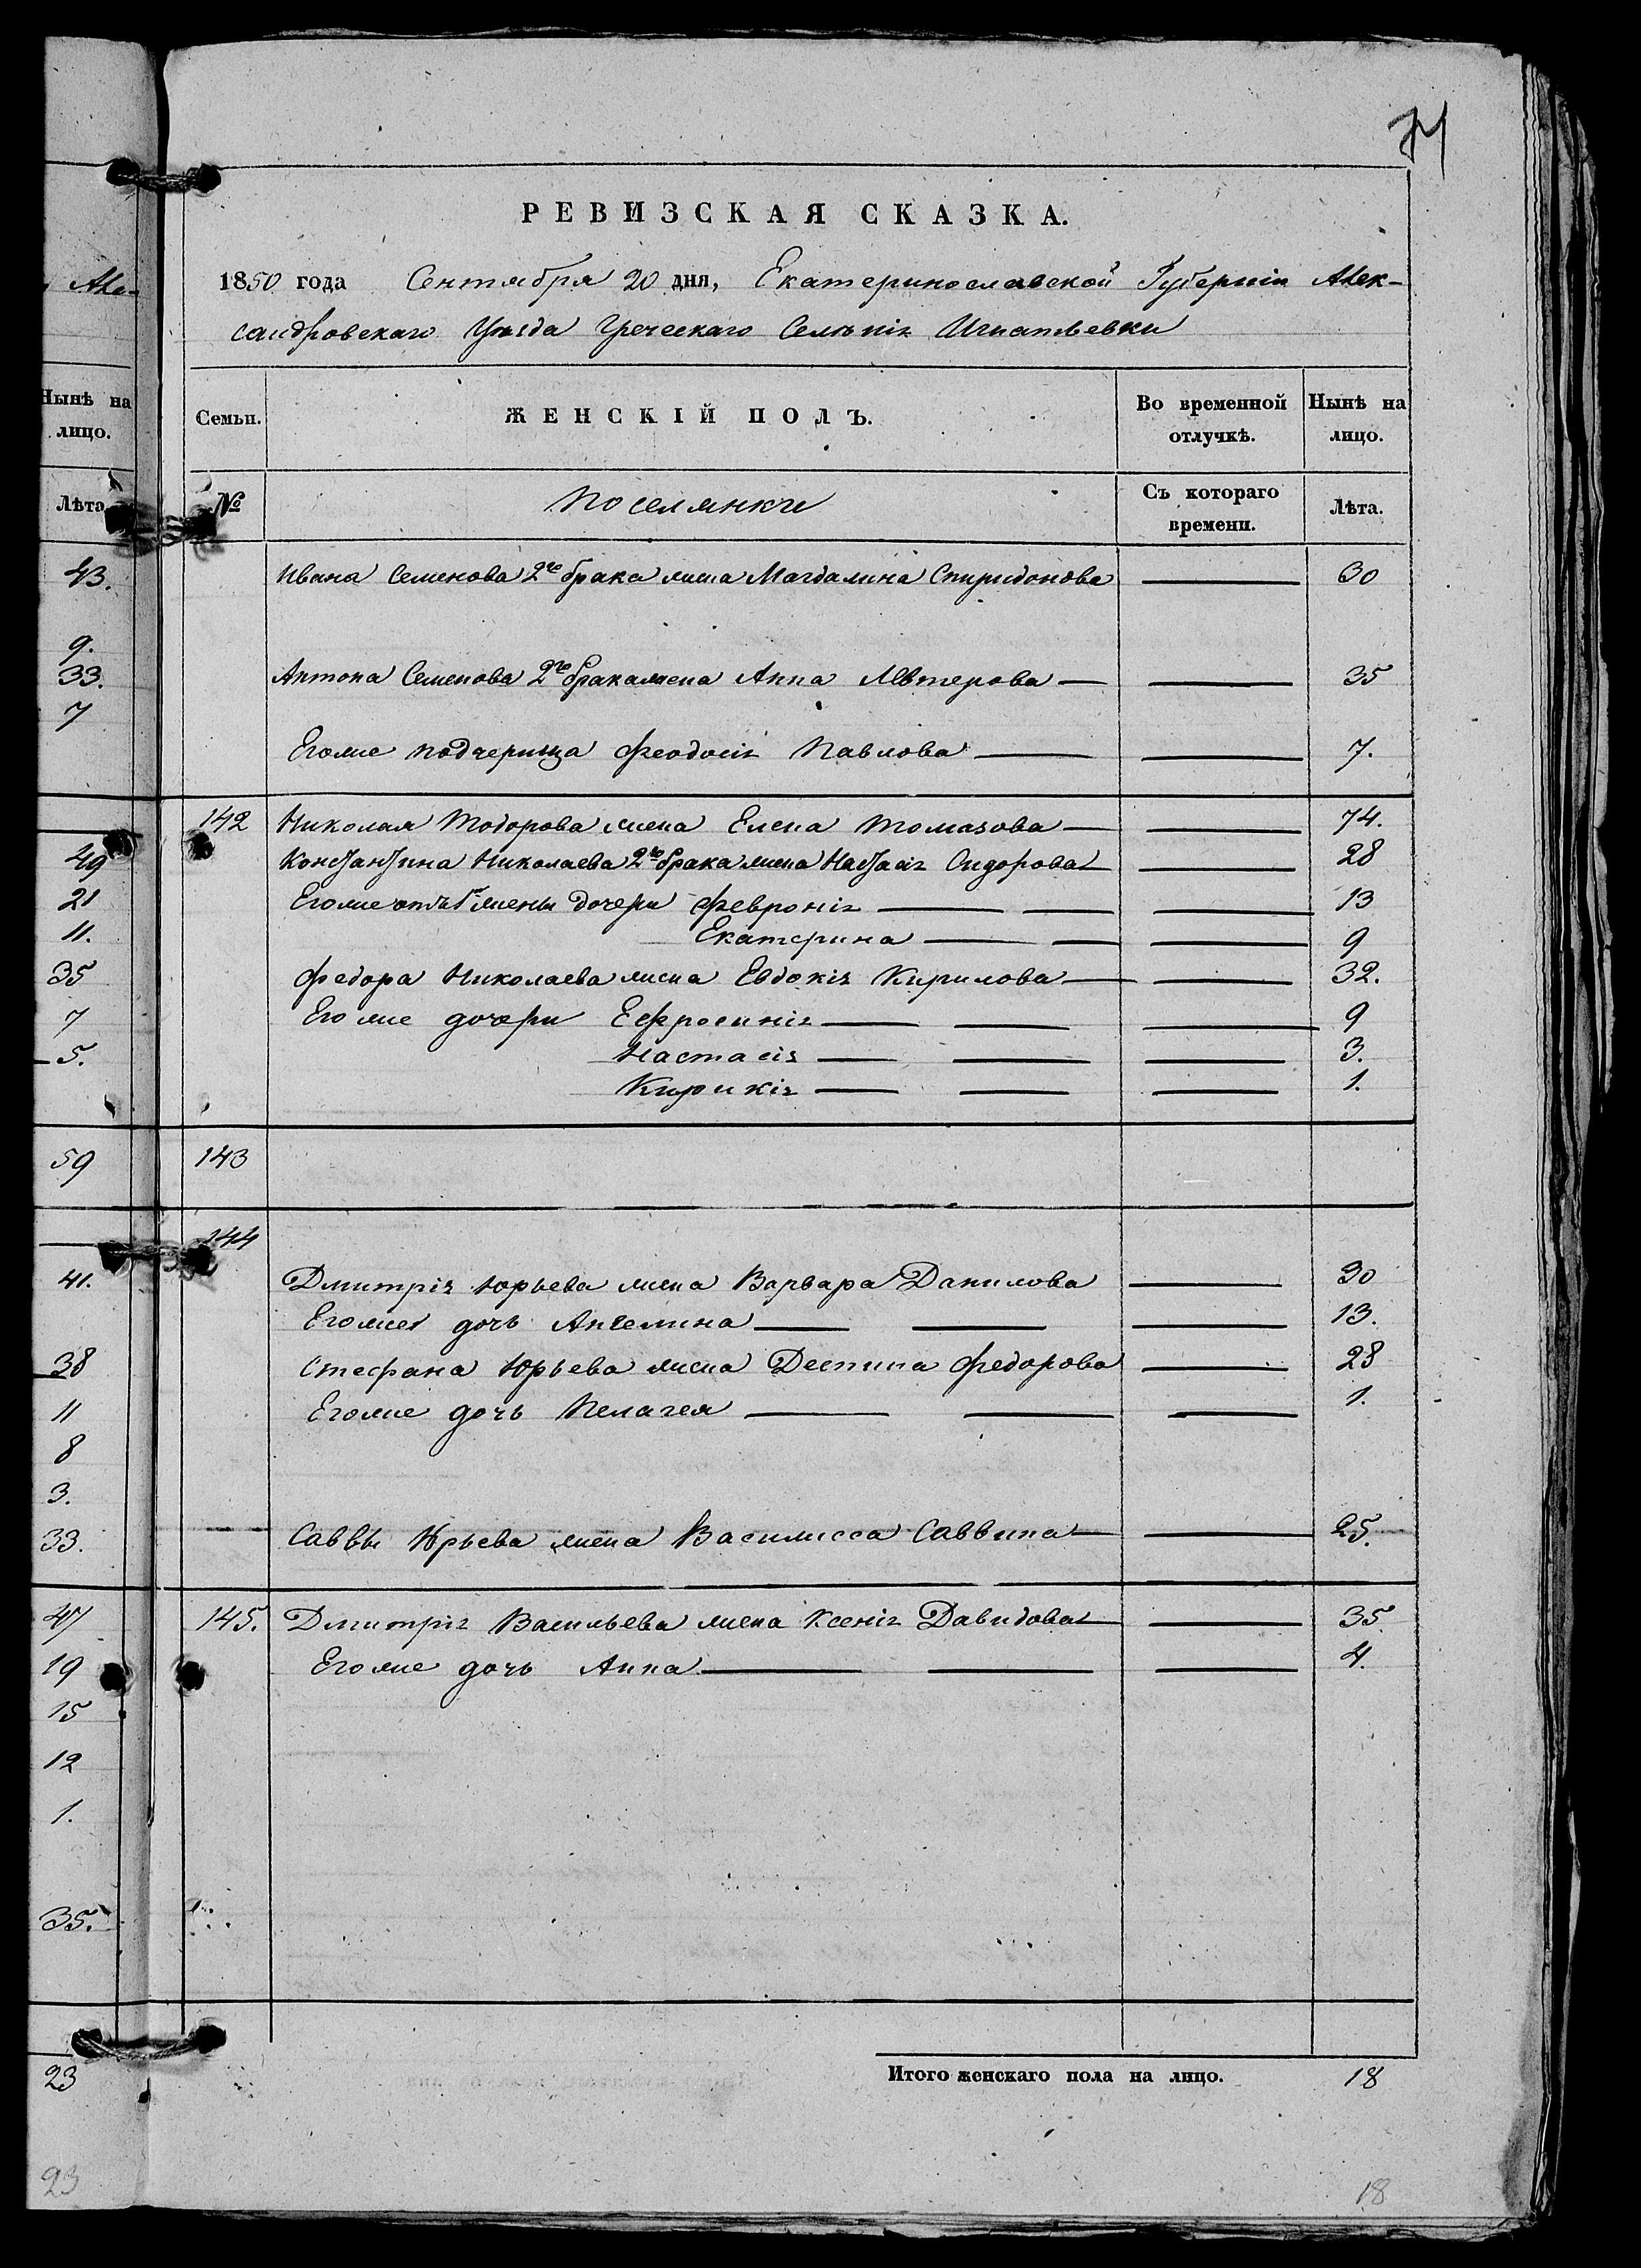 74
РЕВИЗСКАЯ СКАЗКА.
Але-
1850 года Сентября 20 дня, Екатеринославской Губерніи Алек-
сандровскаго Уѣзда Греческаго Селенія Игнатьевки
Нынѣ на лицо.
Семьи. ЖЕНСКІЙ ПОЛЪ. Во временной отлучкѣ. Нынѣ на лицо.
Лѣта
№ Поселянки Съ котораго времени. Лѣта.
43. Ивана Семенова 2го брака жена Магдалина Спиридонова 30
9.
33. Антона Семенова 2го брака жена Анна Левтерова 35
7
Егоже подчерица Феодосія Павлова 7.
142 Николая Тодорова жена Елена Томазова 74.
49 Константина Николаева 2го брака жена Настасія Сидорова 28
21 Егоже отъ 1й жены дочери Февронія 13
11. Екатерина 9
35 Федора Николаева жена Евдокія Кирилова 32.
7 Егоже дочери Ефросинія 9
5. Настасія 3.
Кирикія 1.
59 143
144
41. Дмитрія Юрьева жена Варвара Данилова 30
Егоже дочь Ангелина 13.
38 Стефана Юрьева жена Деспина Федорова 28
11 Егоже дочь Пелагея 1.
8
3.
33. Саввы Юрьева жена Василисса Саввина 25.
47 145. Дмитрія Васильева жена Ксенія Давидова 35.
19 Егоже дочь Анна 4.
15
12
1.
35.
23 Итого женскаго пола на лицо. 18
23 18